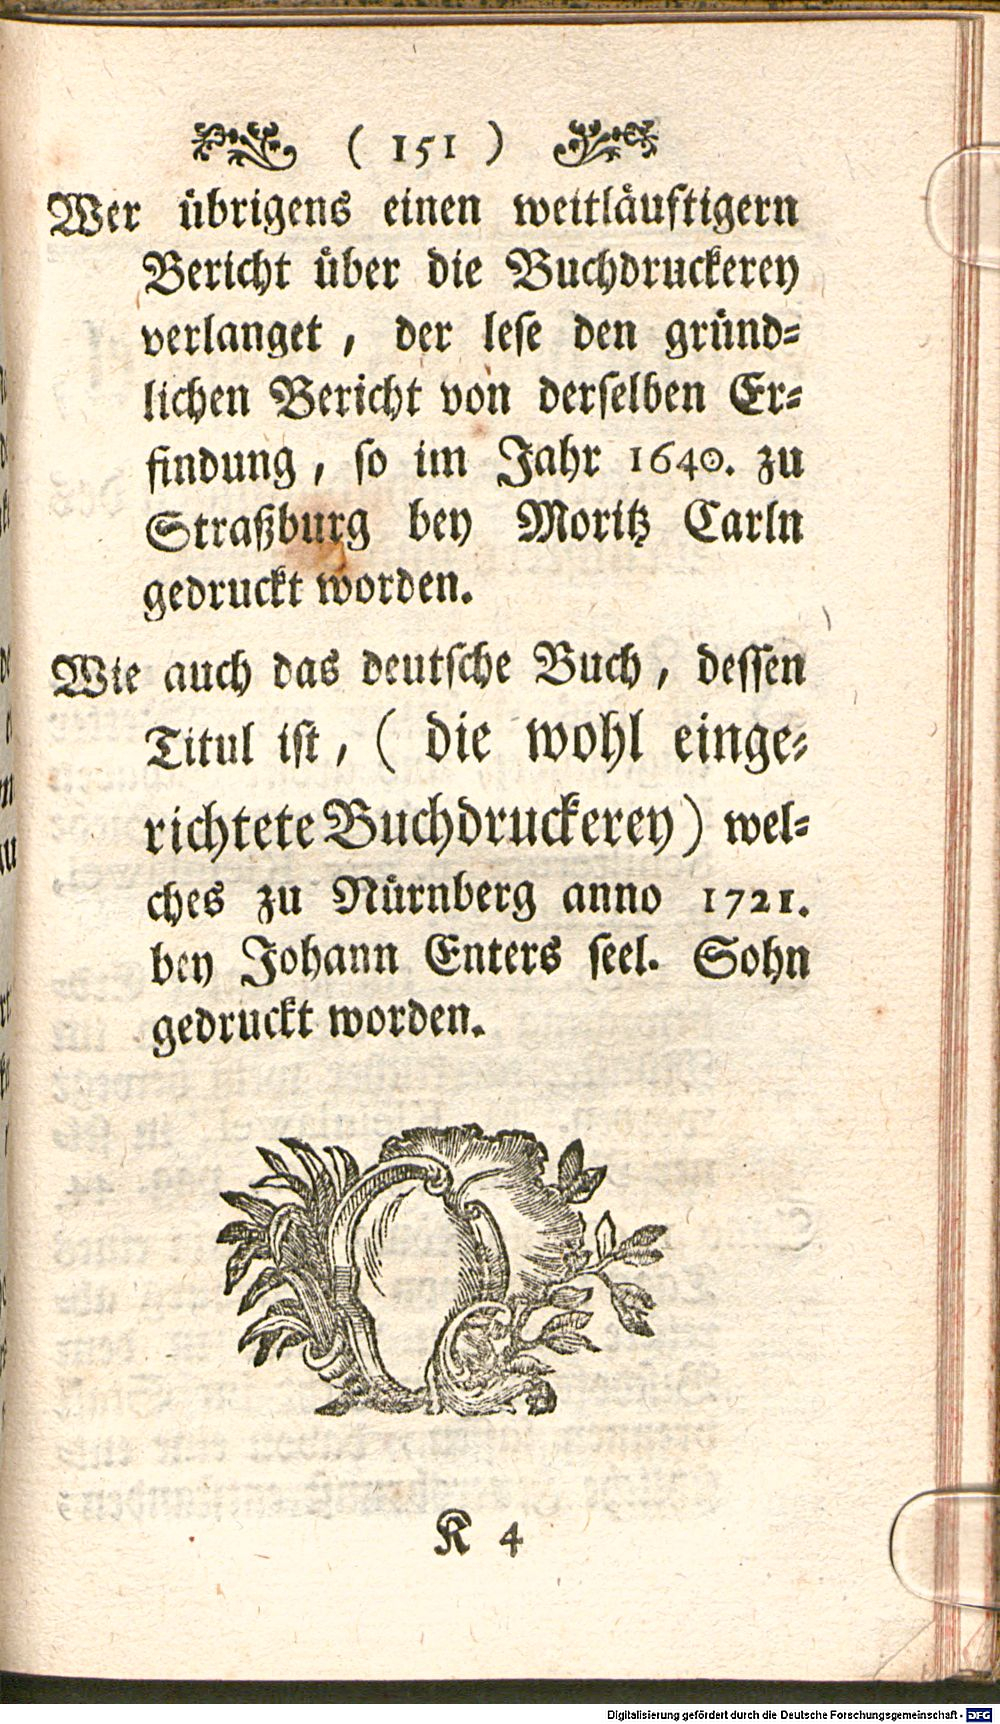 ( 151 )
Wer übrigens einen weitläuftigern
Bericht über die Buchdruckerey
verlanget, der lese den gründ-
lichen Bericht von derselben Er-
findung, so im Jahr 1640. zu
Straßburg bey Moritz Carln
gedruckt worden.
Wie auch das deutsche Buch, dessen
Titul ist, ( die wohl einge-
richtete Buchdruckerey) wel-
ches zu Nürnberg anno 1721.
bey Johann Enters seel. Sohn
gedruckt worden.
K 4
Digitalisierung gefördert durch die Deutsche Forschungsgemeinschaft - DFG